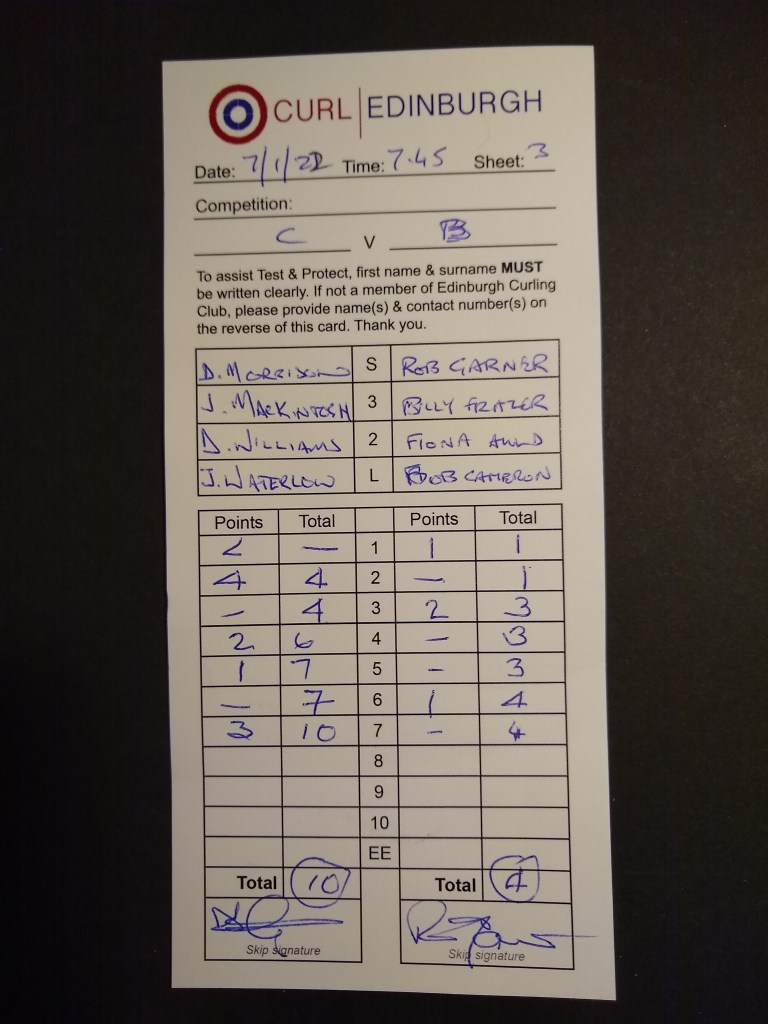 CURL EDINBURGH
Date: 7/1/22 Time: 7.45 Sheet: 3
Competition:
C V B
To assist Test & Protect, first name & surname MUST
be written clearly. If not a member of Edinburgh Curling
Club, please provide name(s) & contact number(s) on
the reverse of this card. Thank you.
D. MORRISON S ROB GARNER
J. MACKINTOSH 3 BILLY FRAZER
D. WILLIAMS 2 FIONA AULD
J. WATERLOW L BOB CAMERON
Points Total Points Total
— 1 1 1
4 4 2 — 1
– 4 3 2 3
2 6 4 – 3
1 7 5 – 3
— 7 6 1 4
3 10 7 – 4
8
9
10
EE
Total 10 Total 4
Skip signature Skip signature